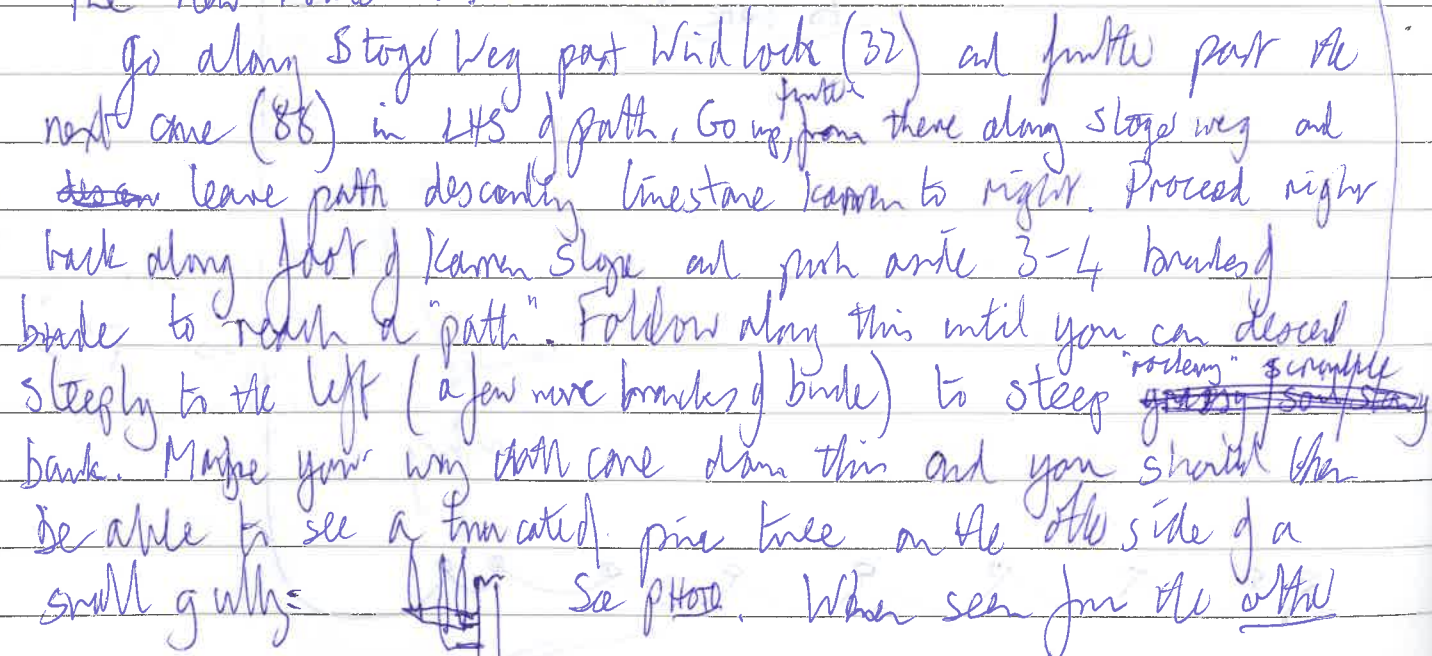 The New
go along Stoger Weg past Windlock (32) and further past the
next cave (88) in LHS of path. Go up, further from there along stoger weg and
leave path descending limestone karren to right. Proceed right
back along foot of Karren slope and push aside 3-4 branches of
bunde to reach a "path". Follow along this until you can descend
steeply to the left (a few more branches of bunde) to steep "rockery" scrample
bank. Make your way with care down this and you should then
be able to see a truncated pine tree on the other side of a
small gully= See PHOTO. When seen from the other